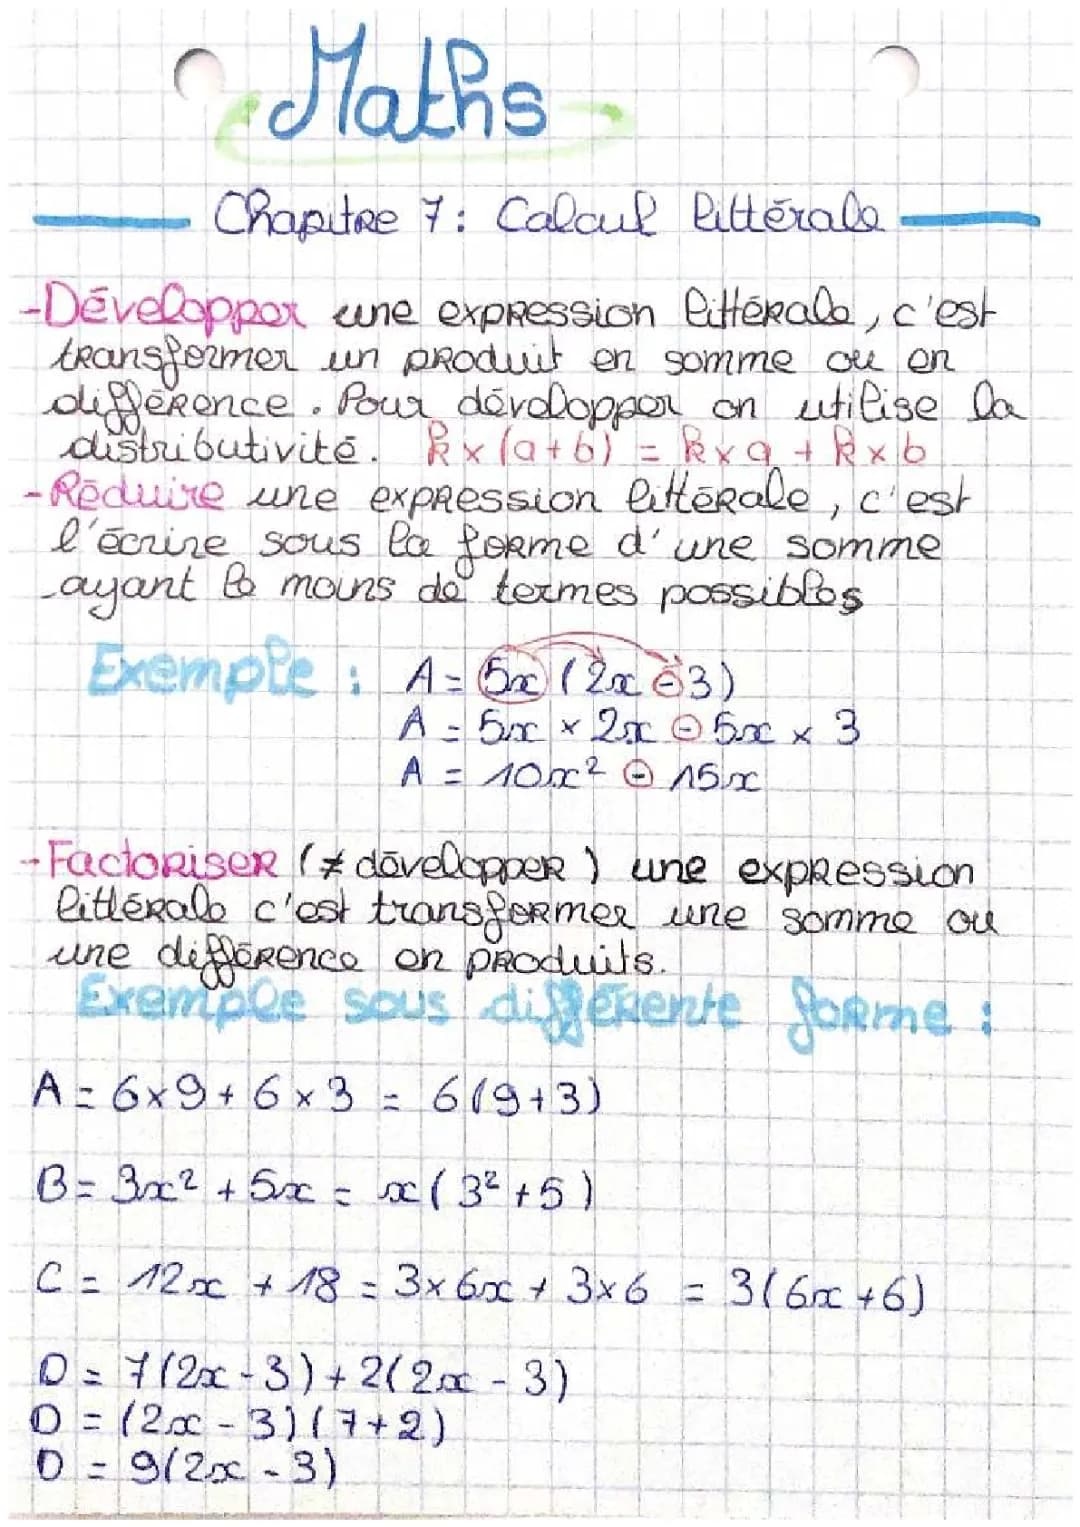 Maths
Chapitre 7 : Calcul littérale
-Développer une expression littérale, c'est
transformer un produit en somme ou en
différence. Pour développer on utilise la
distributivité. k x (a+b) = k x a + k x b
-Réduire une expression littérale, c'est
l'écrire sous la forme d'une somme
ayant le moins de termes possibles
Exemple : A = 5x (2x - 3)
A = 5x × 2x - 5x × 3
A = 10x² - 15x
-Factoriser (≠ développer) une expression
littérale c'est transformer une somme ou
une différence en produits.
Exemple sous différente forme :
A = 6×9 + 6×3 = 6(9+3)
B = 3x² + 5x = x(3²+5)
C = 12x + 18 = 3×6x + 3×6 = 3(6x+6)
D = 7(2x-3)+2(2x-3)
D = (2x-3)(7+2)
D = 9(2x-3)